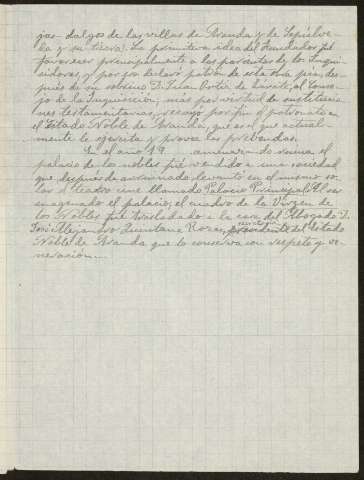 jos-dalgos de las villas de Aranda y de Sepúlve-
da y su tierra. La primitiva idea del Fundador fué
favorecer principalmente a los parientes de los Inqui-
sidores, y por eso declaró patrón de esta obra pía, des-
pués de su sobrino D. Juan Ortiz de Zárate, al Conse-
jo de la Inquisición; mas por virtud de sustitucio-
nes testamentarias, recayó por fin el patronato en
el Estado Noble de Aranda, que es el que actual-
mente lo ejercita y provee las prebendas.
En el año 19 amenazando ruina el
palacio de los nobles fué vendido a una sociedad
que después de arruinado levantó en el mismo so-
lar el teatro cine llamado Palacio Principal. Al ser
enagenado el palacio, el cuadro de la Virgen de
los Nobles fué trasladado a la casa del Abogado D.
José Alejandro Quintana Rozas, presidente del Estado
Noble de Aranda que lo conserva con respeto y ve-
neración...